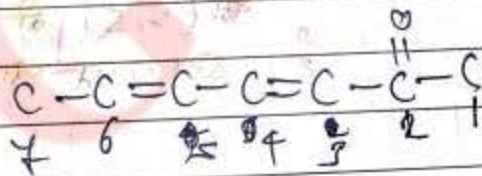 O
||
C - C = C - C = C - C - C
7 6 5 4 3 2 1